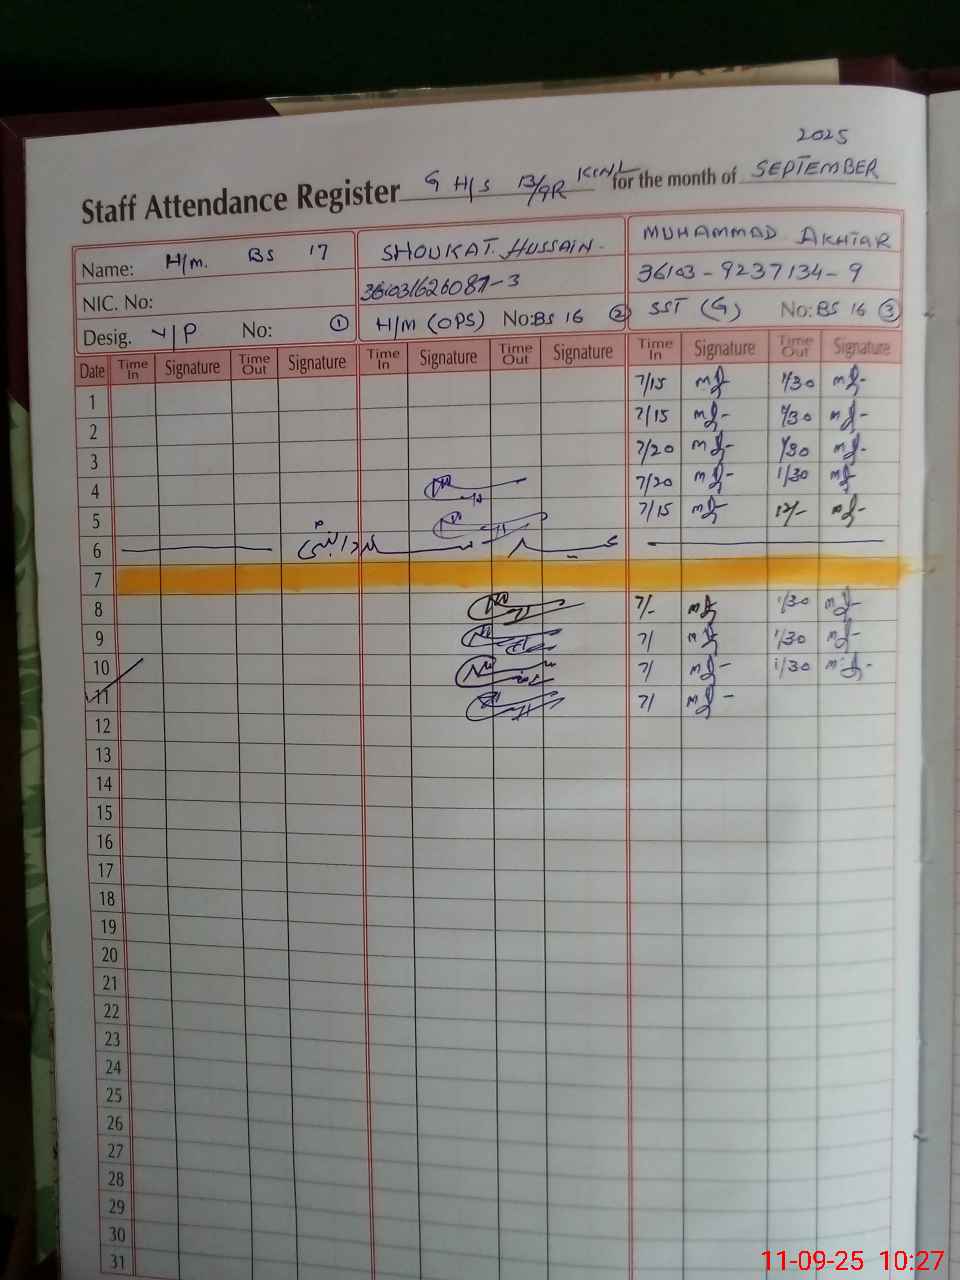 2025
Staff Attendance Register G H/S 13/9R KWL for the month of SEPTEMBER
Name: H/M. BS 17 SHOUKAT HUSSAIN MUHAMMAD AKHTAR
NIC. No: 36103-9237134-9
Desig. V/P No: ① H/M (OPS) No: BS 16 ② SST (G) No: BS 16 ③
Date Time In Signature Time Out Signature Time In Signature Time Out Signature Time In Signature Time Out Signature
1 7/15 1/30
2 7/15 1/30
3 7/20 1/30
4 7/20 1/30
5 7/15 12/-
6 عید میلادالنبیؐ
7
8 7/- 1/30
9 7/ 1/30
10 7/ 1/30
11 7/
12
13
14
15
16
17
18
19
20
21
22
23
24
25
26
27
28
29
30
31
11-09-25 10:27